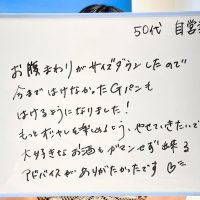 50代 自営
お腹まわりがサイズダウンしたので
今まではけなかったGパンも
はけるようになりました!
もっとオシャレを楽しめるよう、やせていきたいで
大好きなお酒もガマンせず出来る
アドバイスがありがたかったです